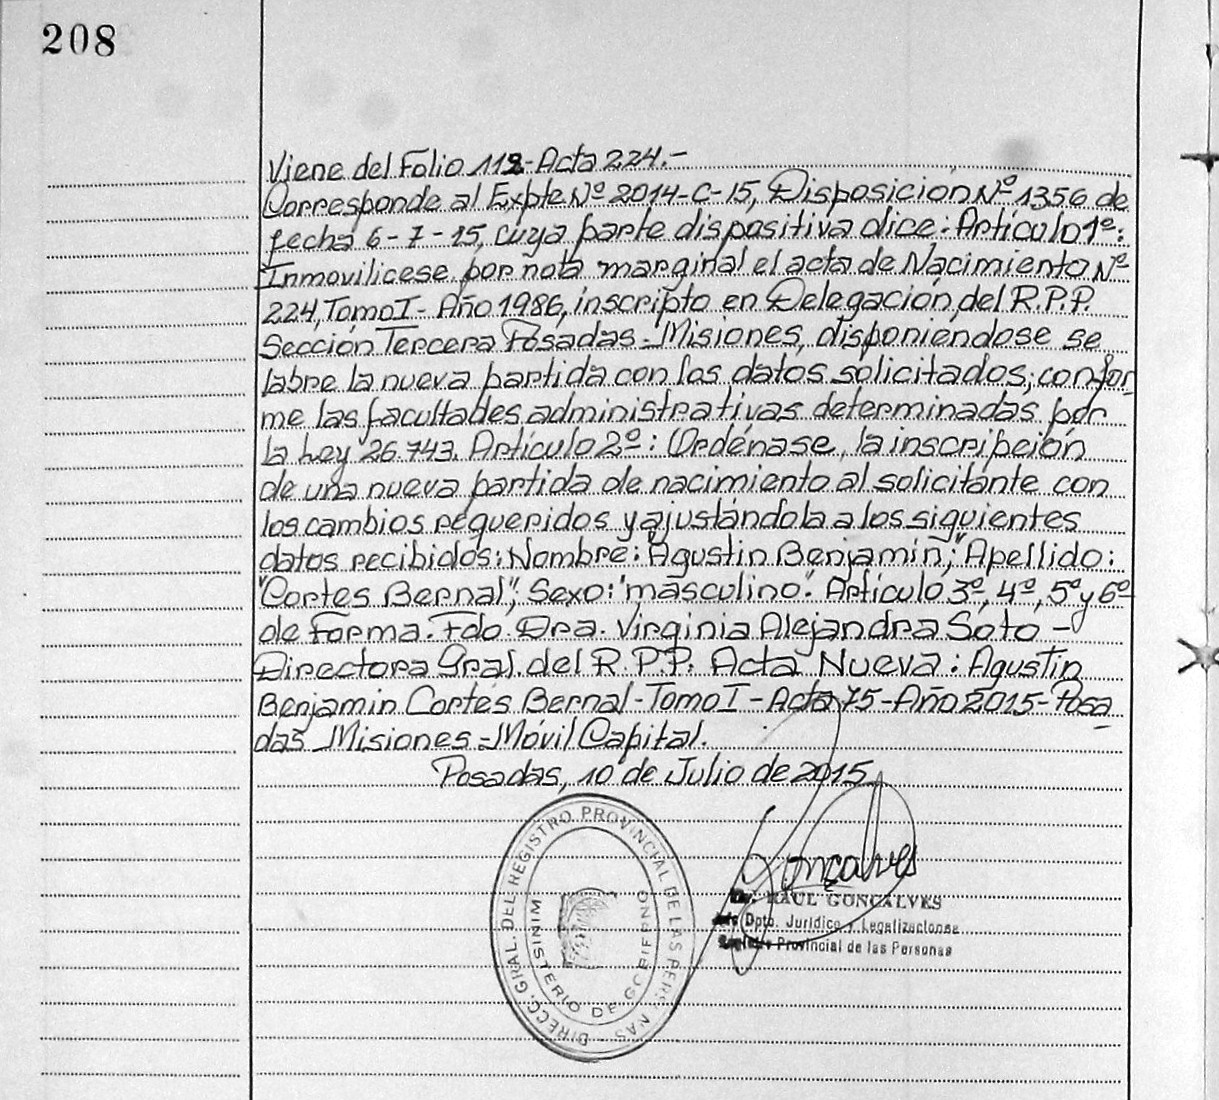 208
Viene del Folio 112-Acta 224.-
Corresponde al Expte Nº 2014-C-15, Disposición Nº 1356 de
fecha 6-7-15, cuya parte dispositiva dice: Artículo 1º:
Inmovilicese por nota marginal el acta de Nacimiento Nº
224, Tomo I - Año 1986, inscripto en Delegación del R.P.P.
Sección Tercera Posadas-Misiones, disponiendose se
labre la nueva partida con los datos solicitados; confor
me las facultades administrativas determinadas por
la Ley 26.743. Artículo 2º: Ordénase, la inscripción
de una nueva partida de nacimiento al solicitante con
los cambios requeridos y ajustándola a los siguientes
datos recibidos: Nombre: "Agustin Benjamin"; Apellido:
"Cortes Bernal"; Sexo: "masculino". Artículo 3º, 4º, 5º y 6º
de Forma. Fdo. Dra. Virginia Alejandra Soto -
Directora Gral. del R.P.P. Acta Nueva: Agustin
Benjamin Cortés Bernal-Tomo I-Acta 75-Año 2015-Posa
das Misiones-Móvil Capital.
Posadas, 10 de Julio de 2015
DIRECC. GRAL. DEL REGISTRO PROVINCIAL DE LAS PERS NAS
MINISTERIO DE GOBIERNO
Gonçalves
RAUL GONCALVES
Dpto. Jurídico y Legalizaciones
Registro Provincial de las Personas